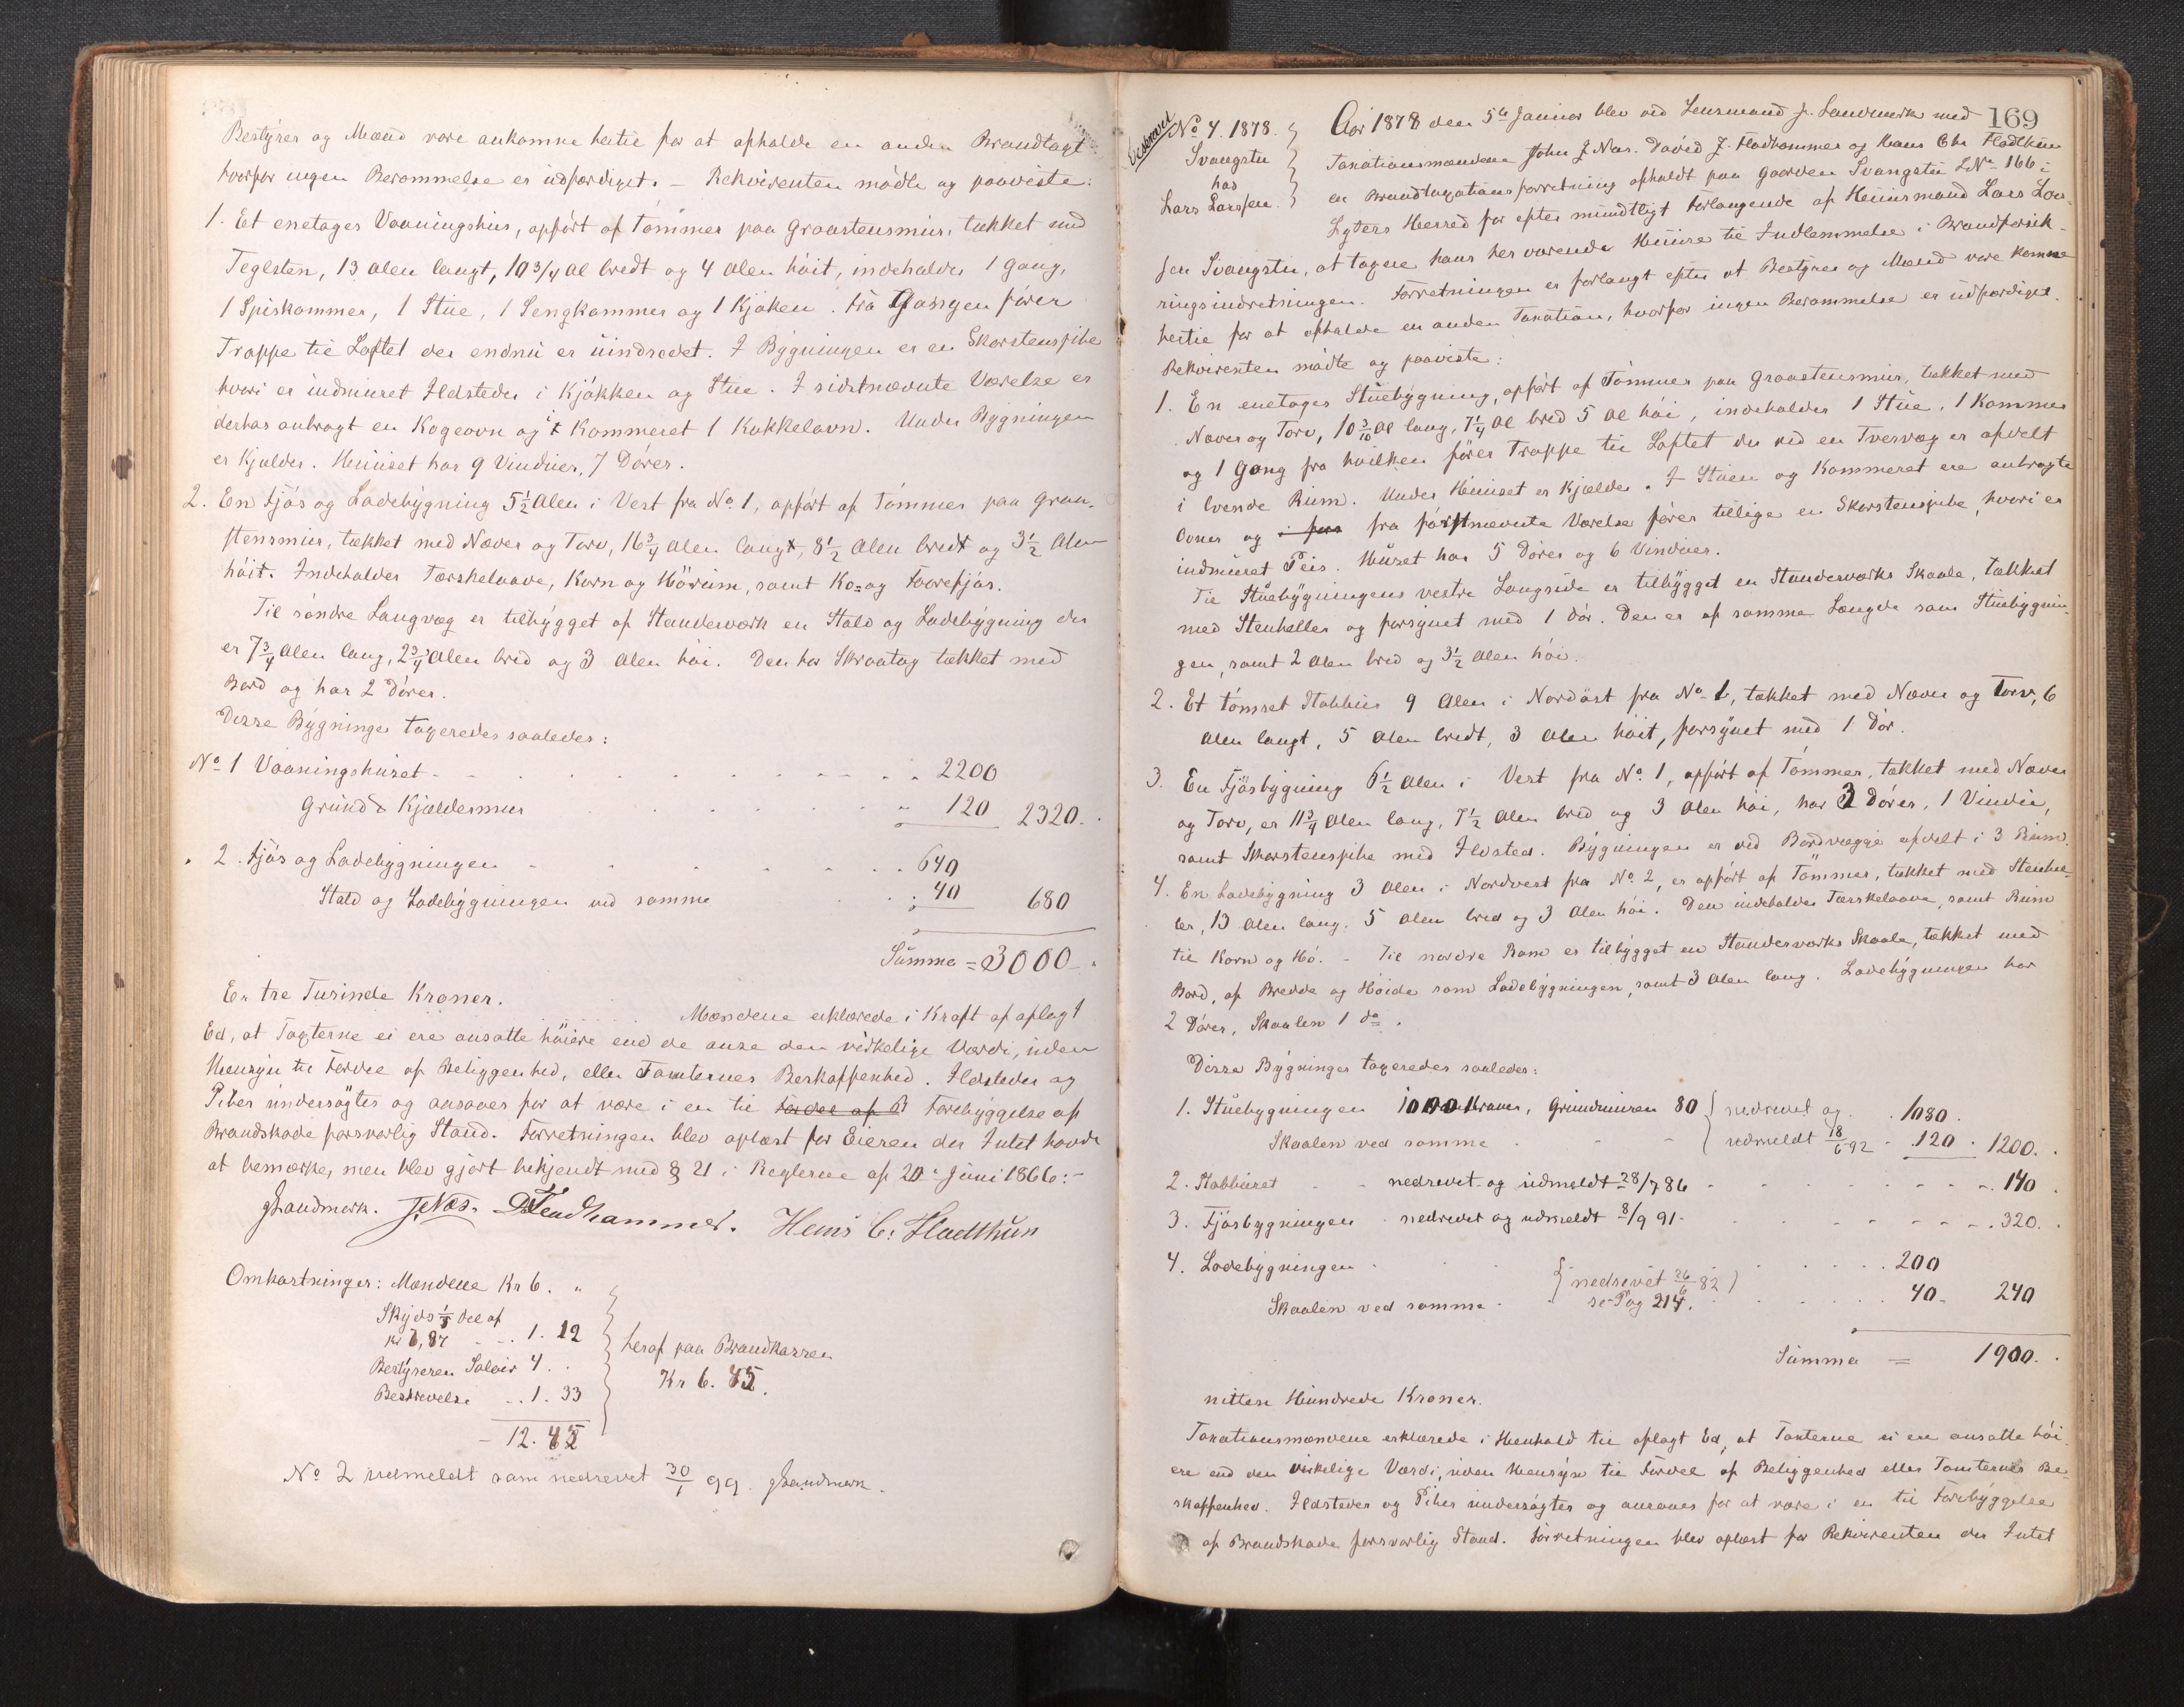 Bestyrer og Mænd vare ankomne hertil for at afholde en anden Brandtaxt
hvorfor ingen Berammelse er udfærdiget. – Rekvirenten mødte og paaviste:
1. Et enetages Vaaningshus, opført af Tømmer paa Graastensmur, tækket med
Teglsten, 13 Alen langt, 10 3/4 Al bredt og 4 Alen høit, indeholder 1 Gang,
1 Spiskammer, 1 Stue, 1 Sengkammer og 1 Kjøken. Fra Gangen fører
Trappe til Loftet der endnu er uindredet. I Bygningen er en Skorstenspibe
hvori er indmuret Ildsteder i Kjøkken og Stue. I sidstnævnte Værelse er
derhos anbragt en Kogeovn og i Kammeret 1 Kakkelovn. Under Bygningen
er Kjælder. Huuset har 9 Vinduer, 7 Døre.
2. En Fjøs og Ladebygning 5 1/2 Alen i Vest fra No 1, opført af Tømmer paa Graa-
stensmur, tækket med Næver og Torv, 16 3/4 Alen langt, 8 1/2 Alen bredt og 3 1/2 Alen
høit. Indeholder Tærskelaave, Korn og Hörum, samt Ko- og Faarefjøs.
Til søndre Langvæg er tilbygget af Standerværk en Stald og Ladebygning der
er 7 3/4 Alen lang, 2 3/4 Alen bred og 3 Alen høi. Den har Skraatag tækket med
Bord og har 2 Døre.
Disse Bygninger taxeredes saaledes:
No 1 Vaaningshuset - - . . . . 2200
Grund & Kjældermur . . . 120 2320.
" 2. Fjøs og Ladebygningen - . . . 640
Stald og Ladebygningen ved samme . . 40 680
Summa = 3000.
Er tre Tusinde Kroner.
Mændene erklærede i Kraft af aflagt
Ed, at Taxterne ei ere ansatte høiere end de anse den virkelige Værdi, uden
Hensyn til Fordel af Beliggenhed, eller Tomternes Beskaffenhed. Ildsteder og
Piber undersøgtes og ansaaes for at være i en til Fordel af B Forebyggelse af
Brandskade forsvarlig Stand. Forretningen blev oplæst for Eieren der Intet havde
at bemærke, men blev gjort bekjendt med § 21 i Reglerne af 20 Juni 1866:-
JLandmerk. J. Næs. D Fladhammer. Hans C. Fladthun
Omkostninger: Mændene Kr 6. "
Skyds 1/5 Del af
Kr , 87 . . 1. 12
Bestyreren Salair 4. .
Beskrivelse . . 1. 33
heraf paa Brandkassen
Kr 6. 45.
12. 45
No 2 udmeldt som nedrevet 30/1 99. JLandmerk.
169
Udskrevet
No 4. 1878.
Svangstu
hos
Lars Larssen.
Aar 1878 den 5te Januar blev ved Lensmand J. Landmerk med
Taxationsmændene John J Næs. David J. Fladhammer og Hans Chr Fladthun
en Brandtaxationsforretning afholdt paa Gaarden Svangstu LNo 166 i
Lyters Herred for efter mundtligt Forlangende af Huusmand Lars Lar-
sen Svangstu, at taxere hans her værende Huuse til Indlemmelse i Brandforsik-
ringsindretningen. Forretningen er forlangt efter at Bestyrer og Mænd vare komne
hertil for at afholde en anden Taxation, hvorfor ingen Berammelse er udfærdiget.
Rekvirenten mødte og paaviste:
1. En enetages Stuebygning, opført af Tømmer paa Graastensmur, tækket med
Næver og Torv, 10 3/10 Al lang, 7 1/4 Al bred 5 Al høi, indeholder 1 Stue, 1 Kammer
og 1 Gang fra hvilken fører Trappe til Loftet der ved en Tvervæg er afdelt
i tvende Rum. Under Huuset er Kjælder. I Stuen og Kammeret ere anbragte
Ovner og fra førstnævnte Værelse fører tillige en Skorstenspibe, hvori er
indmuret Peis. Huset har 5 Døre og 6 Vinduer.
Til Stuebygningens vestre Langside er tilbygget en Standerværks Skaale, tækket
med Stenheller og forsynet med 1 Dør. Den er af samme Længde som Stuebygnin-
gen, samt 2 Alen bred og 3 1/2 Alen høi.
2. Et tømret Stabbur 9 Alen i Nordøst fra No 1, tækket med Næver og Torv, 6
Alen langt, 5 Alen bredt, 3 Alen høit, forsynet med 1 Dør.
3. En Fjøsbygning 6 1/2 Alen i Vest fra No 1, opført af Tømmer, tækket med Næver
og Torv, er 11 3/4 Alen lang, 7 1/2 Alen bred og 3 Alen høi, har 3 Døre, 1 Vindue,
samt Skorstenspibe med Ildsted. Bygningen er ved Bordvægge afdelt i 3 Rum.
4. En Ladebygning 3 Alen i Nordvest fra No 2, er opført af Tømmer, tækket med Stenhel-
ler, 13 Alen lang, 5 Alen bred og 3 Alen høi. Den indeholder Tærskelaave, samt Rum
til Korn og Hø. - Til nordre Ram er tilbygget en Standerværks Skaale, tækket med
Bord, af Bredde og Høide som Ladebygningen, samt 3 Alen lang. Ladebygningen har
2 Døre, Skaalen 1 do.
Disse Bygninger taxeredes saaledes:
1. Stuebygningen 1000 Kroner, Grundmuren 80 { nedrevet og . 1080.
Skaalen ved samme . - - { udmeldt 18/6 92 - . 120 . 1200.
2. Stabburet - - nedrevet og udmeldt 28/7 86 - . . . 140.
3. Fjøsbygningen - nedrevet og udmeldt 8/9 91 - . . . 320.
4. Ladebygningen . . { nedrevet 26/6 82 } . . . 200
Skaalen ved samme - . se Pag 214. . . . 40 - 240
Summa = 1900.
nitten Hundrede Kroner.
Taxationsmændene erklærede i Henhold til aflagt Ed, at Taxterne ei ere ansatte høi-
ere end den virkelige Værdi, uden Hensyn til Fordel af Beliggenhed eller Tomternes Be-
skaffenhed. Ildsteder og Piber undersøgtes og ansaaes for at være i en til Forebyggelse
af Brandskade forsvarlig Stand. Forretningen blev oplæst for Rekvirenten der Intet